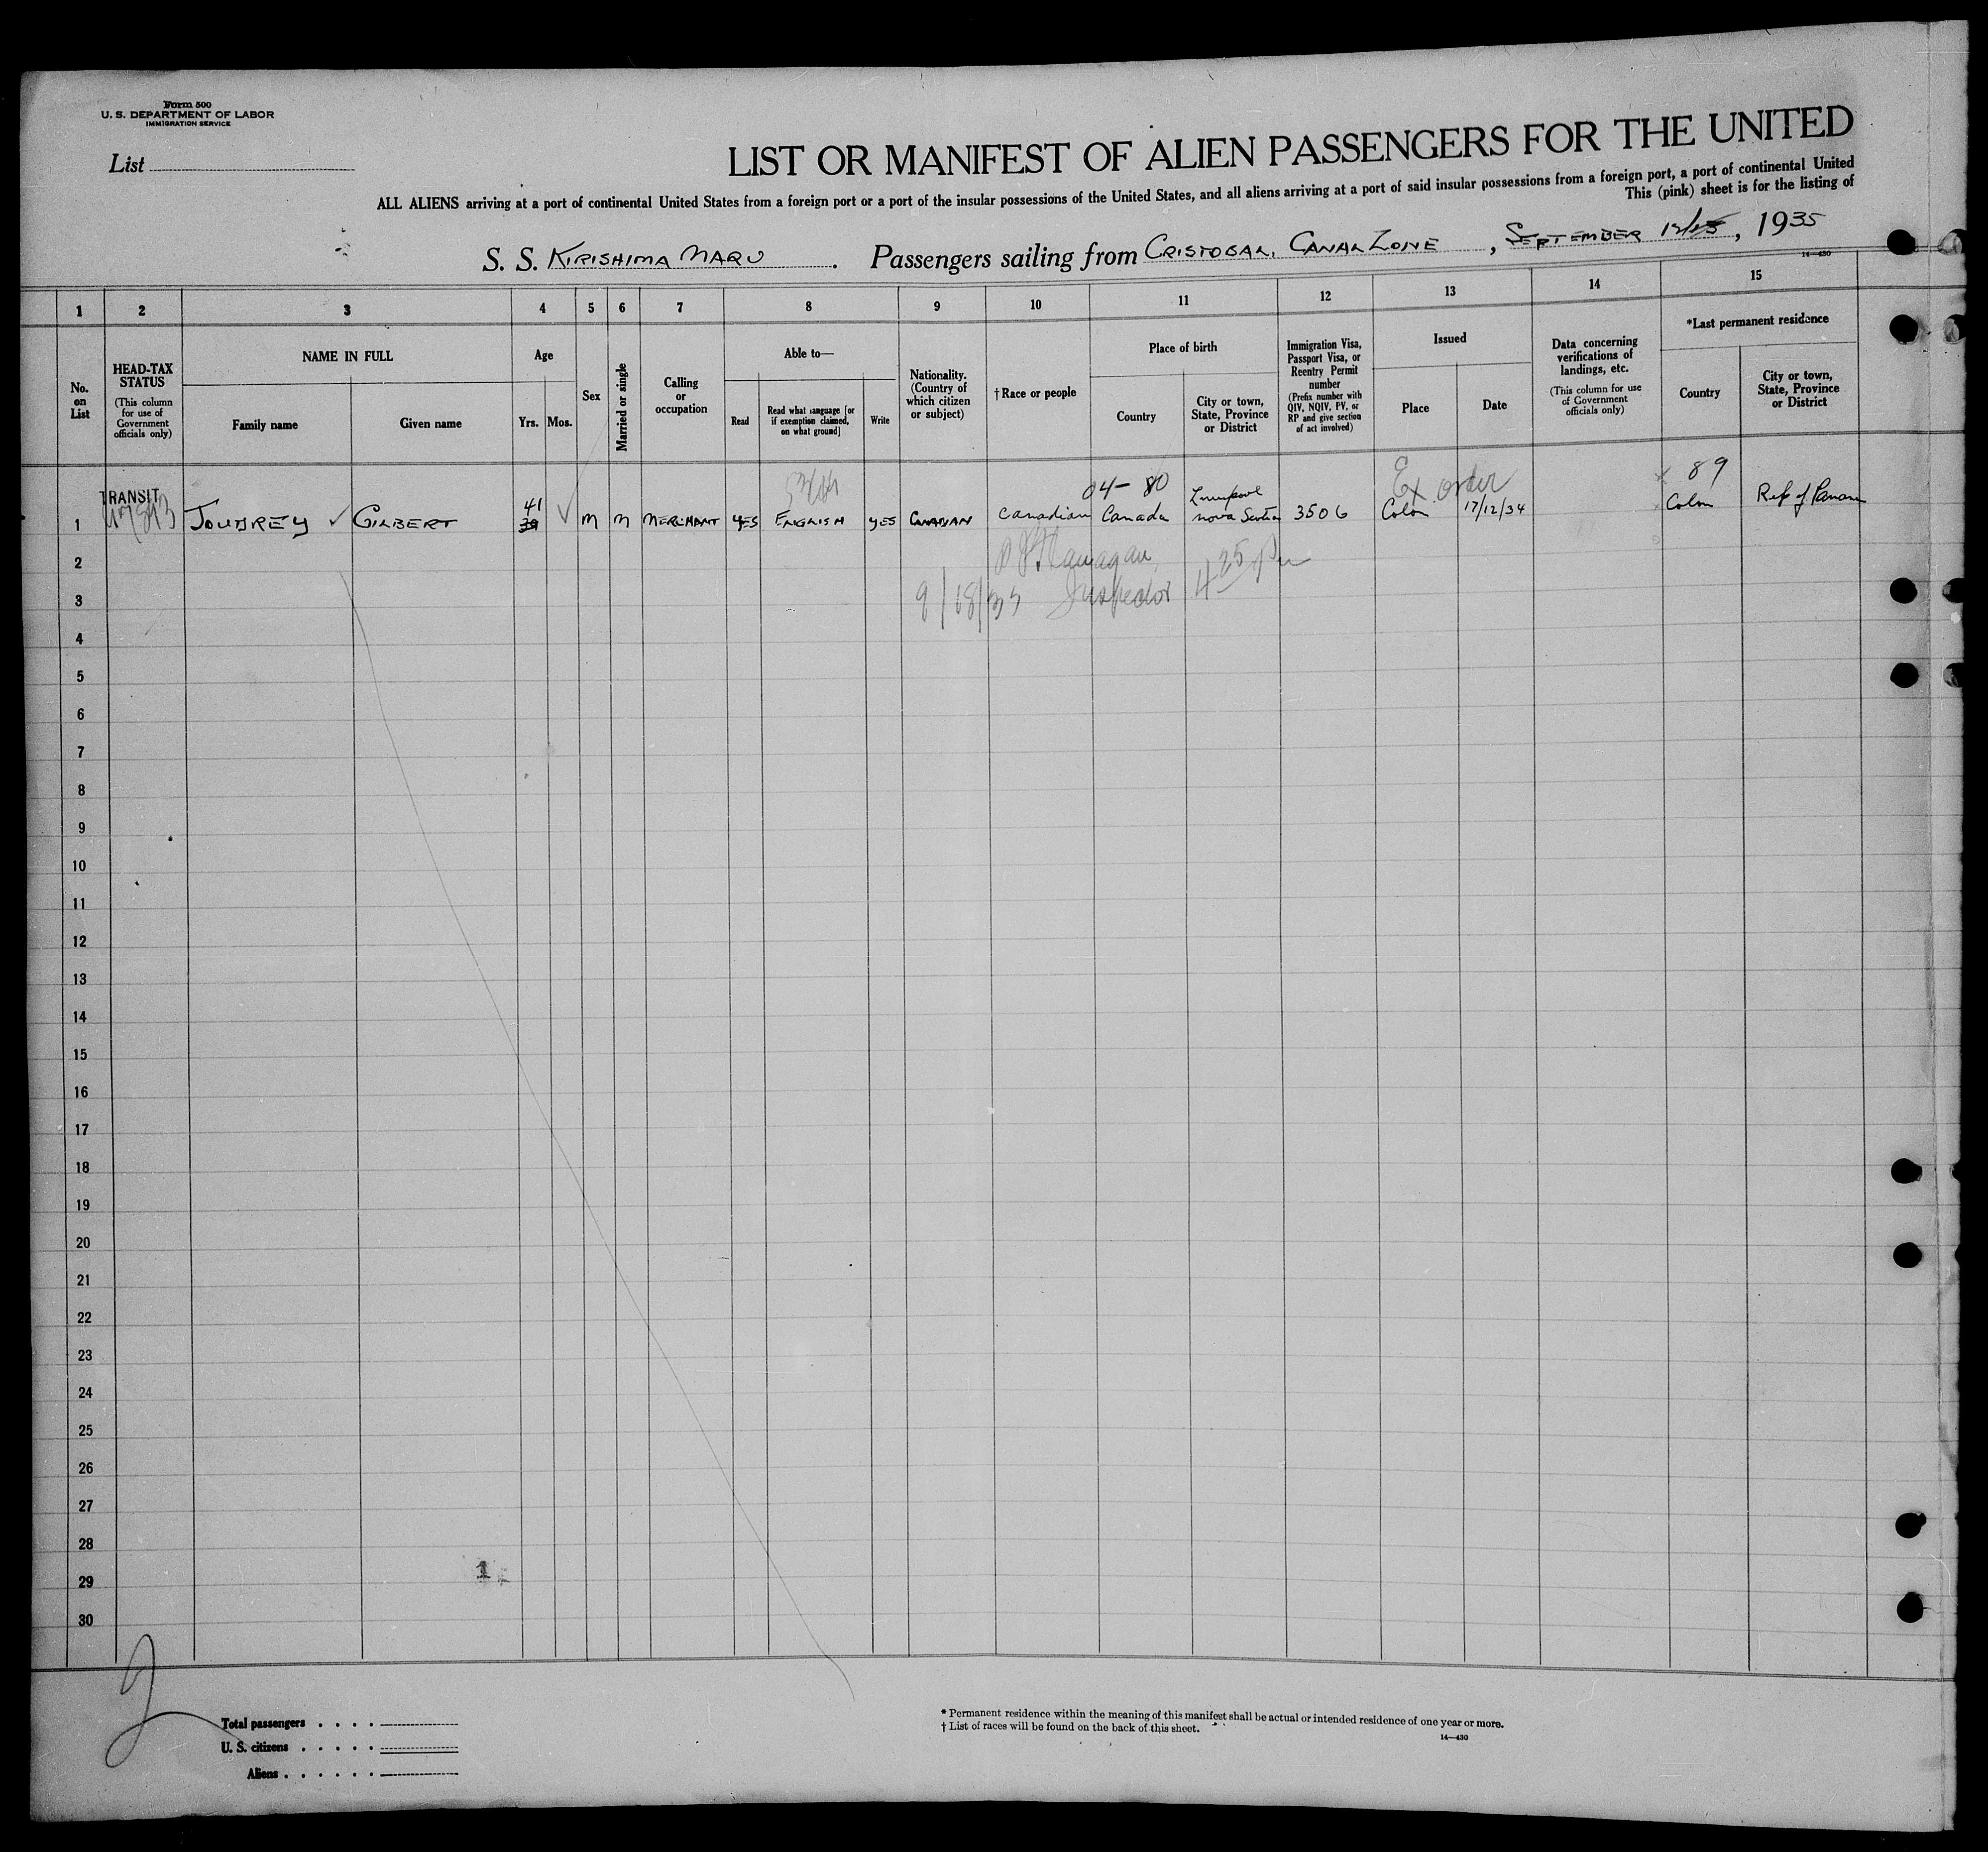 Form 500
U. S. DEPARTMENT OF LABOR
IMMIGRATION SERVICE
List
LIST OR MANIFEST OF ALIEN PASSENGERS FOR THE UNITED
ALL ALIENS arriving at a port of continental United States from a foreign port or a port of the insular possessions of the United States, and all aliens arriving at a port of said insular possessions from a foreign port, a port of continental United
This (pink) sheet is for the listing of
S. S. KIRISHIMA MARU. Passengers sailing from CRISTOBAL, CANAL ZONE, SEPTEMBER, 1935
14—430
1 2 3 4 5 6 7 8 9 10 11 12 13 14 15
No. on List
HEAD-TAX STATUS
(This column for use of Government officials only)
NAME IN FULL
Family name
Given name
Age
Yrs. Mos.
Sex
Married or single
Calling or occupation
Able to—
Read
Read what language [or if exemption claimed, on what ground]
Write
Nationality. (Country of which citizen or subject)
†Race or people
Place of birth
Country
City or town, State, Province or District
Immigration Visa, Passport Visa, or Reentry Permit number
(Prefix number with QIV, NQIV, PV, or RP and give section of act involved)
Issued
Place
Date
Data concerning verifications of landings, etc.
(This column for use of Government officials only)
*Last permanent residence
Country
City or town, State, Province or District
TRANSIT
04— 80
Ex order
89
1 JOUDREY ✓ GILBERT 41 39 ✓ M M MERCHANT YES ENGLISH YES CANADIAN Canadian Canada Liverpool Nova Scotia 3506 Colon 17/12/34 Colon Rep of Panama
2
3 9/18/35 Inspector 4 25 pm
4
5
6
7
8
9
10
11
12
13
14
15
16
17
18
19
20
21
22
23
24
25
26
27
28
29 1
30
Total passengers . . . .
U. S. citizens . . . . .
Aliens . . . . . .
* Permanent residence within the meaning of this manifest shall be actual or intended residence of one year or more.
† List of races will be found on the back of this sheet.
14—430